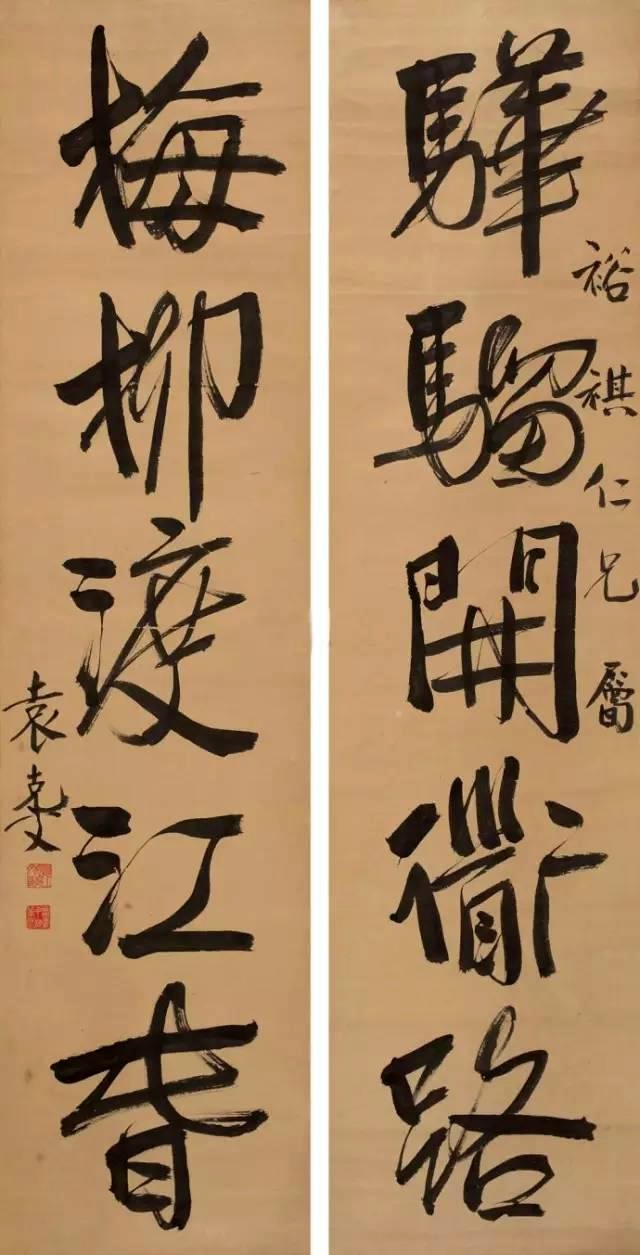 裕祺仁兄屬
驊騮開衜路
梅柳渡江春
袁克文